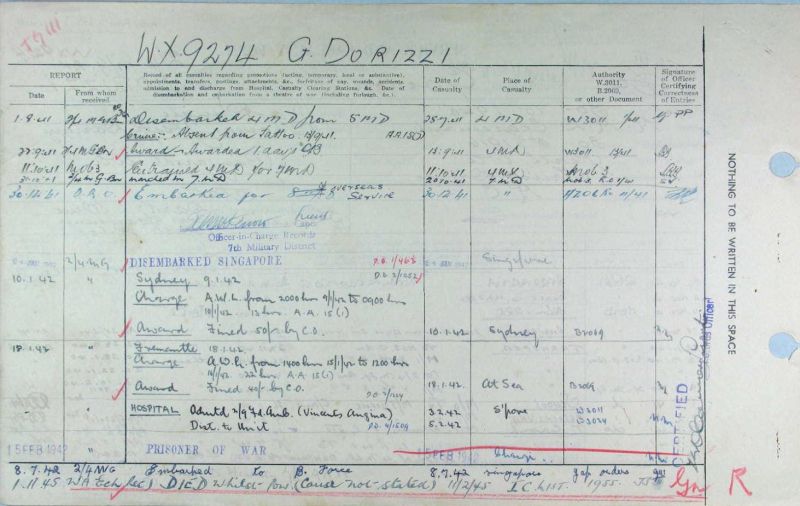 W.X.9274 G. DORIZZI
REPORT
Date
From whom received
Record of all casualties regarding promotions (acting, temporary, local or substantive), appointments, transfers, postings, attachments, &c., forfeiture of pay, wounds, accidents, admission to and discharge from Hospital, Casualty Clearing Stations, &c. Date of disembarkation and embarkation from a theatre of war (including furlough, &c.).
Date of Casualty
Place of Casualty
Authority W.3011, B.2069, or other Document
Signature of Officer Certifying Correctness of Entries
1.8.41 Disembarked 4 M D from 5 M D 25.7.41 4 M D W3011
Crime:- Absent from Tattoo
22.9.41 Award:- Awarded 1 days CB 4MD W3011
11.10.41 Mob 3 Entrained 4 MD for 7 MD 11.10.41 4 MD
marched in 7 MD 7 MD
30.12.41 O.R.O Embarked for OVERSEAS SERVICE 30.12.41 "
Officer-in-Charge Records
7th Military District
2/4 MG DISEMBARKED SINGAPORE Singapore
10.1.42 " Sydney 9.1.42
Charge A.W.L. from 2000 hrs 9/1/42 to 0900 hrs
10/1/42. 13 hrs. A.A 15 (1)
Award Fined 50/- by C.O. 10.1.42 Sydney B2069
18.1.42 " Fremantle 18.1.42
Charge A.W.L. from 1400 hrs 15/1/42 to 1200 hrs
16/1/42. 22 hrs. A.A 15(1)
Award Fined 40/- by C.O. 18.1.42. At Sea B2069
" HOSPITAL Admtd 2/9 Fd. Amb. (Vincents Angina) 3.2.42 S'pore W3011
Disc. to Unit 5.2.42 W3034
15 FEB 1942 " PRISONER OF WAR 15 FEB 1942 Changi
8.7.42 2/4 MG Embarked to B. Force 8.7.42 Singapore
1.11.45 DIED whilst POW (Cause not stated) 11/2/45 1955
Gr R
NOTHING TO BE WRITTEN IN THIS SPACE
CERTIFIED